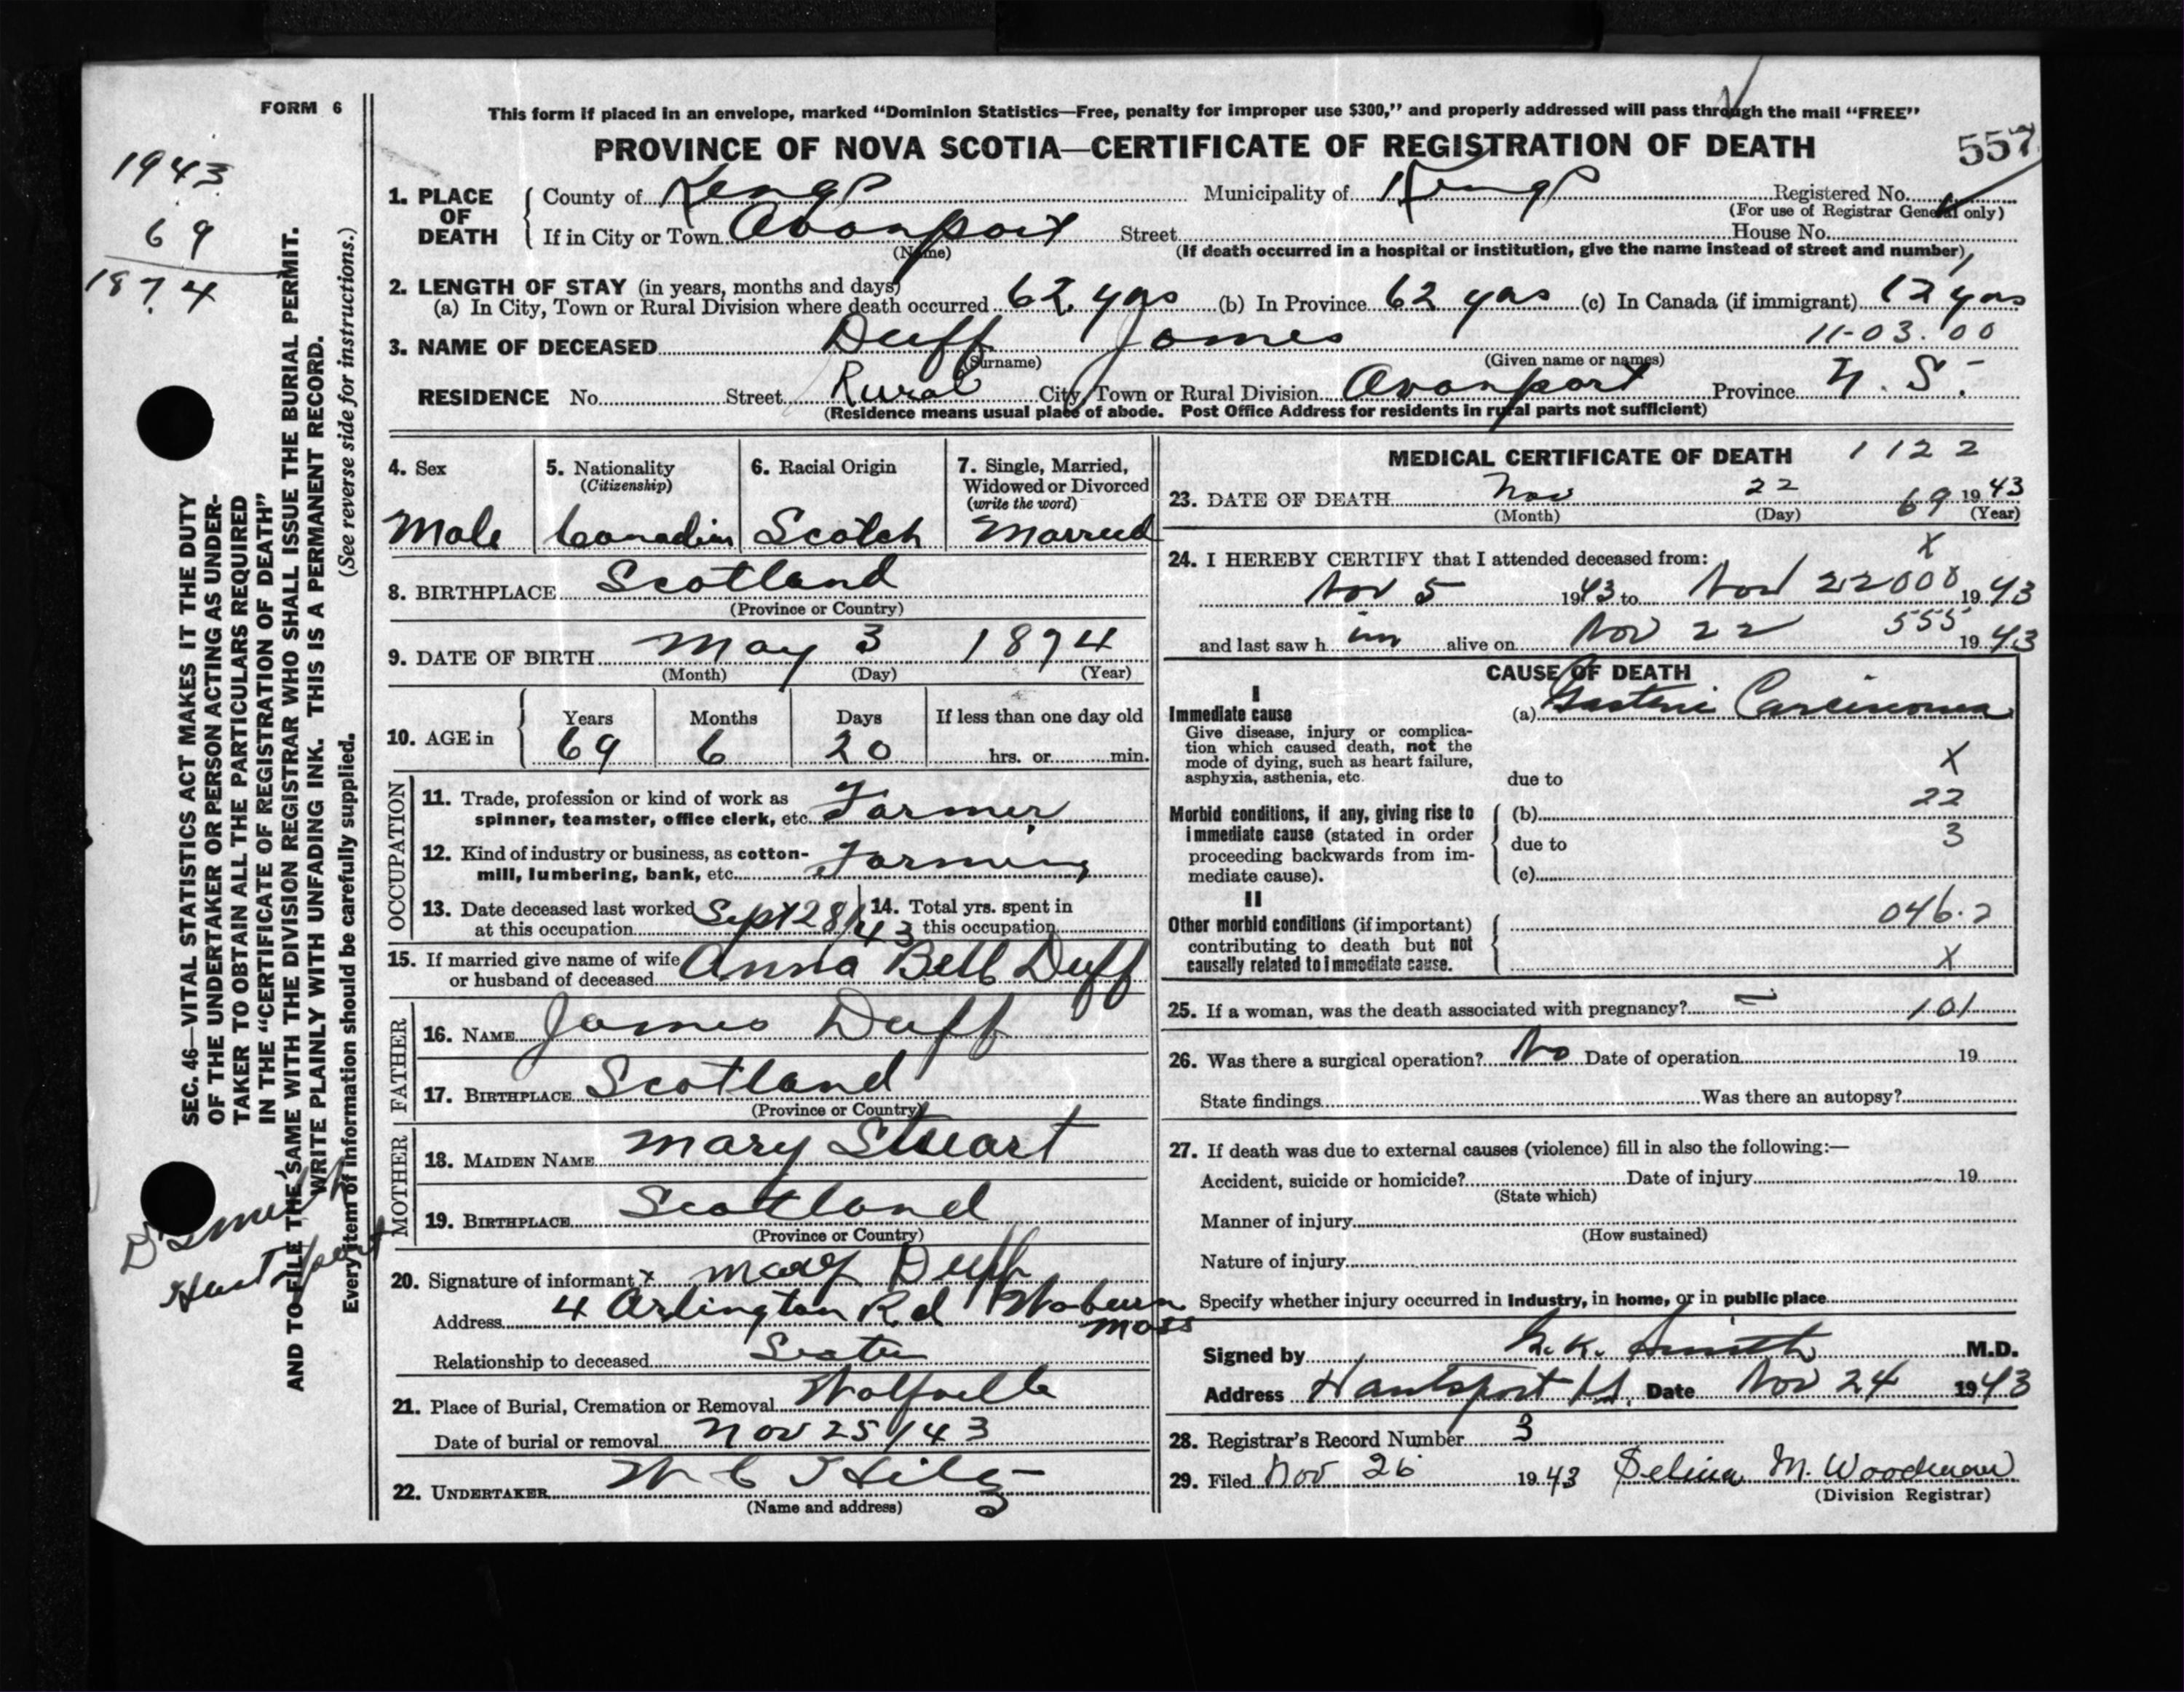 FORM 6
This form if placed in an envelope, marked “Dominion Statistics—Free, penalty for improper use $300,” and properly addressed will pass through the mail “FREE”
PROVINCE OF NOVA SCOTIA—CERTIFICATE OF REGISTRATION OF DEATH
557
1943
69
1874
1. PLACE OF DEATH
County of Kings Municipality of Kings Registered No.
(For use of Registrar General only)
If in City or Town Avonport Street House No.
(Name) (If death occurred in a hospital or institution, give the name instead of street and number)
2. LENGTH OF STAY (in years, months and days)
(a) In City, Town or Rural Division where death occurred 62 yrs (b) In Province 62 yrs (c) In Canada (if immigrant) 12 yrs
3. NAME OF DECEASED Duff James 11-03.00
(Surname) (Given name or names)
RESIDENCE No. Street Rural City, Town or Rural Division Avonport Province N. S.
(Residence means usual place of abode. Post Office Address for residents in rural parts not sufficient)
4. Sex
Male
5. Nationality
(Citizenship)
Canadian
6. Racial Origin
Scotch
7. Single, Married,
Widowed or Divorced
(write the word)
Married
8. BIRTHPLACE Scotland
(Province or Country)
9. DATE OF BIRTH May 3 1874
(Month) (Day) (Year)
10. AGE in
Years Months Days If less than one day old
69 6 20 hrs. or min.
OCCUPATION
11. Trade, profession or kind of work as
spinner, teamster, office clerk, etc. Farmer
12. Kind of industry or business, as cotton-
mill, lumbering, bank, etc. Farming
13. Date deceased last worked
at this occupation Sept 28/43
14. Total yrs. spent in
this occupation
15. If married give name of wife
or husband of deceased Anna Bell Duff
FATHER
16. NAME James Duff
17. BIRTHPLACE Scotland
(Province or Country)
MOTHER
18. MAIDEN NAME Mary Stuart
19. BIRTHPLACE Scotland
(Province or Country)
20. Signature of informant x Mary Duff
Address 4 Arlington Rd Woburn
Mass
Relationship to deceased Sister
21. Place of Burial, Cremation or Removal Wolfville
Date of burial or removal Nov 25/43
22. UNDERTAKER W C Hiltz
(Name and address)
MEDICAL CERTIFICATE OF DEATH 1122
23. DATE OF DEATH Nov 22 69 1943
(Month) (Day) (Year)
X
24. I HEREBY CERTIFY that I attended deceased from:
Nov 5 1943 to Nov 22 000 1943
and last saw him alive on Nov 22 555 1943
CAUSE OF DEATH
I
Immediate cause
Give disease, injury or complica-
tion which caused death, not the
mode of dying, such as heart failure,
asphyxia, asthenia, etc.
(a) Gastric Carcinoma
X
due to
22
Morbid conditions, if any, giving rise to
immediate cause (stated in order
proceeding backwards from im-
mediate cause).
(b)
due to 3
(c)
II
Other morbid conditions (if important)
contributing to death but not
causally related to immediate cause.
046.2
X
25. If a woman, was the death associated with pregnancy? — 101
26. Was there a surgical operation? No Date of operation 19
State findings Was there an autopsy?
27. If death was due to external causes (violence) fill in also the following:—
Accident, suicide or homicide? Date of injury 19
(State which)
Manner of injury
(How sustained)
Nature of injury
Specify whether injury occurred in Industry, in home, or in public place
Signed by K. Smith M.D.
Address Hantsport N.S. Date Nov 24 1943
28. Registrar's Record Number 3
29. Filed Nov 26 1943 Selina M. Woodman
(Division Registrar)
SEC. 46—VITAL STATISTICS ACT MAKES IT THE DUTY
OF THE UNDERTAKER OR PERSON ACTING AS UNDER-
TAKER TO OBTAIN ALL THE PARTICULARS REQUIRED
IN THE “CERTIFICATE OF REGISTRATION OF DEATH”
AND TO FILE THE SAME WITH THE DIVISION REGISTRAR WHO SHALL ISSUE THE BURIAL PERMIT.
WRITE PLAINLY WITH UNFADING INK. THIS IS A PERMANENT RECORD.
Every item of information should be carefully supplied. (See reverse side for instructions.)
Dr Smith
Hantsport